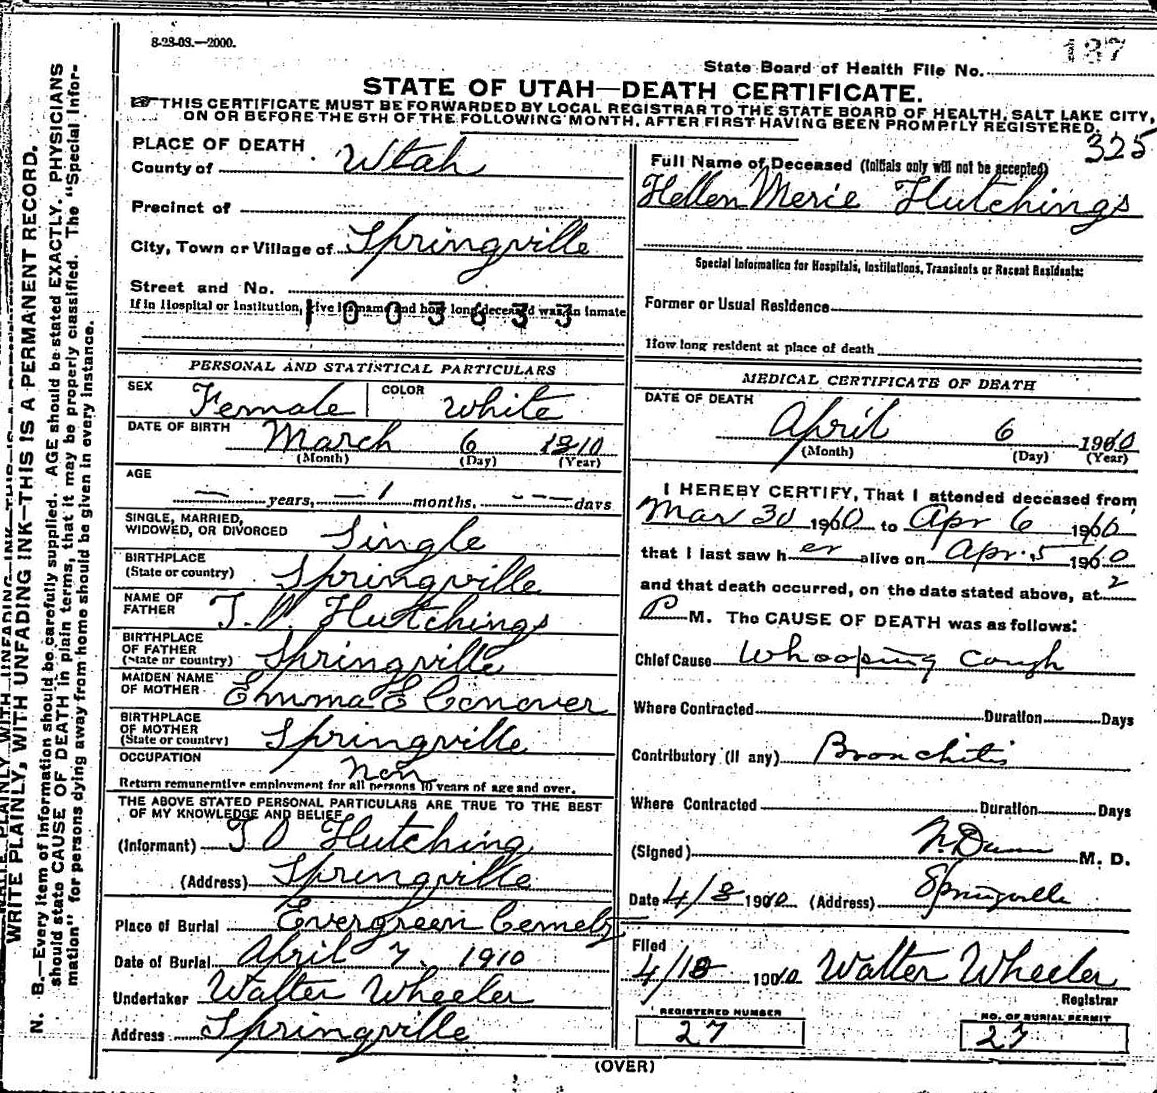 8-23-09.—2000.
187
State Board of Health File No.
STATE OF UTAH—DEATH CERTIFICATE.
THIS CERTIFICATE MUST BE FORWARDED BY LOCAL REGISTRAR TO THE STATE BOARD OF HEALTH, SALT LAKE CITY,
ON OR BEFORE THE 5TH OF THE FOLLOWING MONTH, AFTER FIRST HAVING BEEN PROMPTLY REGISTERED.
325
WRITE PLAINLY, WITH UNFADING INK—THIS IS A PERMANENT RECORD.
N. B.—Every item of information should be carefully supplied. AGE should be stated EXACTLY. PHYSICIANS
should state CAUSE OF DEATH in plain terms, that it may be properly classified. The "Special Infor-
mation" for persons dying away from home should be given in every instance.
PLACE OF DEATH
County of Utah
Precinct of
City, Town or Village of Springville
Street and No.
If in Hospital or Institution, give its name and how long deceased was an inmate
1003633
PERSONAL AND STATISTICAL PARTICULARS
SEX Female COLOR White
DATE OF BIRTH March 6 1910
(Month) (Day) (Year)
AGE
— years, — 1 months, — — — days
SINGLE, MARRIED,
WIDOWED, OR DIVORCED Single
BIRTHPLACE
(State or country) Springville
NAME OF
FATHER T. D. Hutchings
BIRTHPLACE
OF FATHER
(State or country) Springville
MAIDEN NAME
OF MOTHER Emma E Conover
BIRTHPLACE
OF MOTHER
(State or country) Springville
OCCUPATION non
Return remunerative employment for all persons 10 years of age and over.
THE ABOVE STATED PERSONAL PARTICULARS ARE TRUE TO THE BEST
OF MY KNOWLEDGE AND BELIEF
(Informant) T D Hutching
(Address) Springville
Place of Burial Evergreen Cemety
Date of Burial April 7. 1910
Undertaker Walter Wheeler
Address Springville
Full Name of Deceased (Initials only will not be accepted)
Hellen Merie Hutchings
Special Information for Hospitals, Institutions, Transients or Recent Residents:
Former or Usual Residence
How long resident at place of death
MEDICAL CERTIFICATE OF DEATH
DATE OF DEATH
April 6 1910
(Month) (Day) (Year)
I HEREBY CERTIFY, That I attended deceased from
Mar 30 1910 to Apr 6 1910
that I last saw her alive on Apr. 5 1910
and that death occurred, on the date stated above, at 2
P M. The CAUSE OF DEATH was as follows:
Chief Cause Whooping Cough
Where Contracted Duration Days
Contributory (If any) Bronchitis
Where Contracted Duration Days
(Signed) N Dunn M. D.
Date 4/8 1910 (Address) Springville
Filed
4/18 1910 Walter Wheeler
Registrar
REGISTERED NUMBER
27
NO. OF BURIAL PERMIT
27
(OVER)